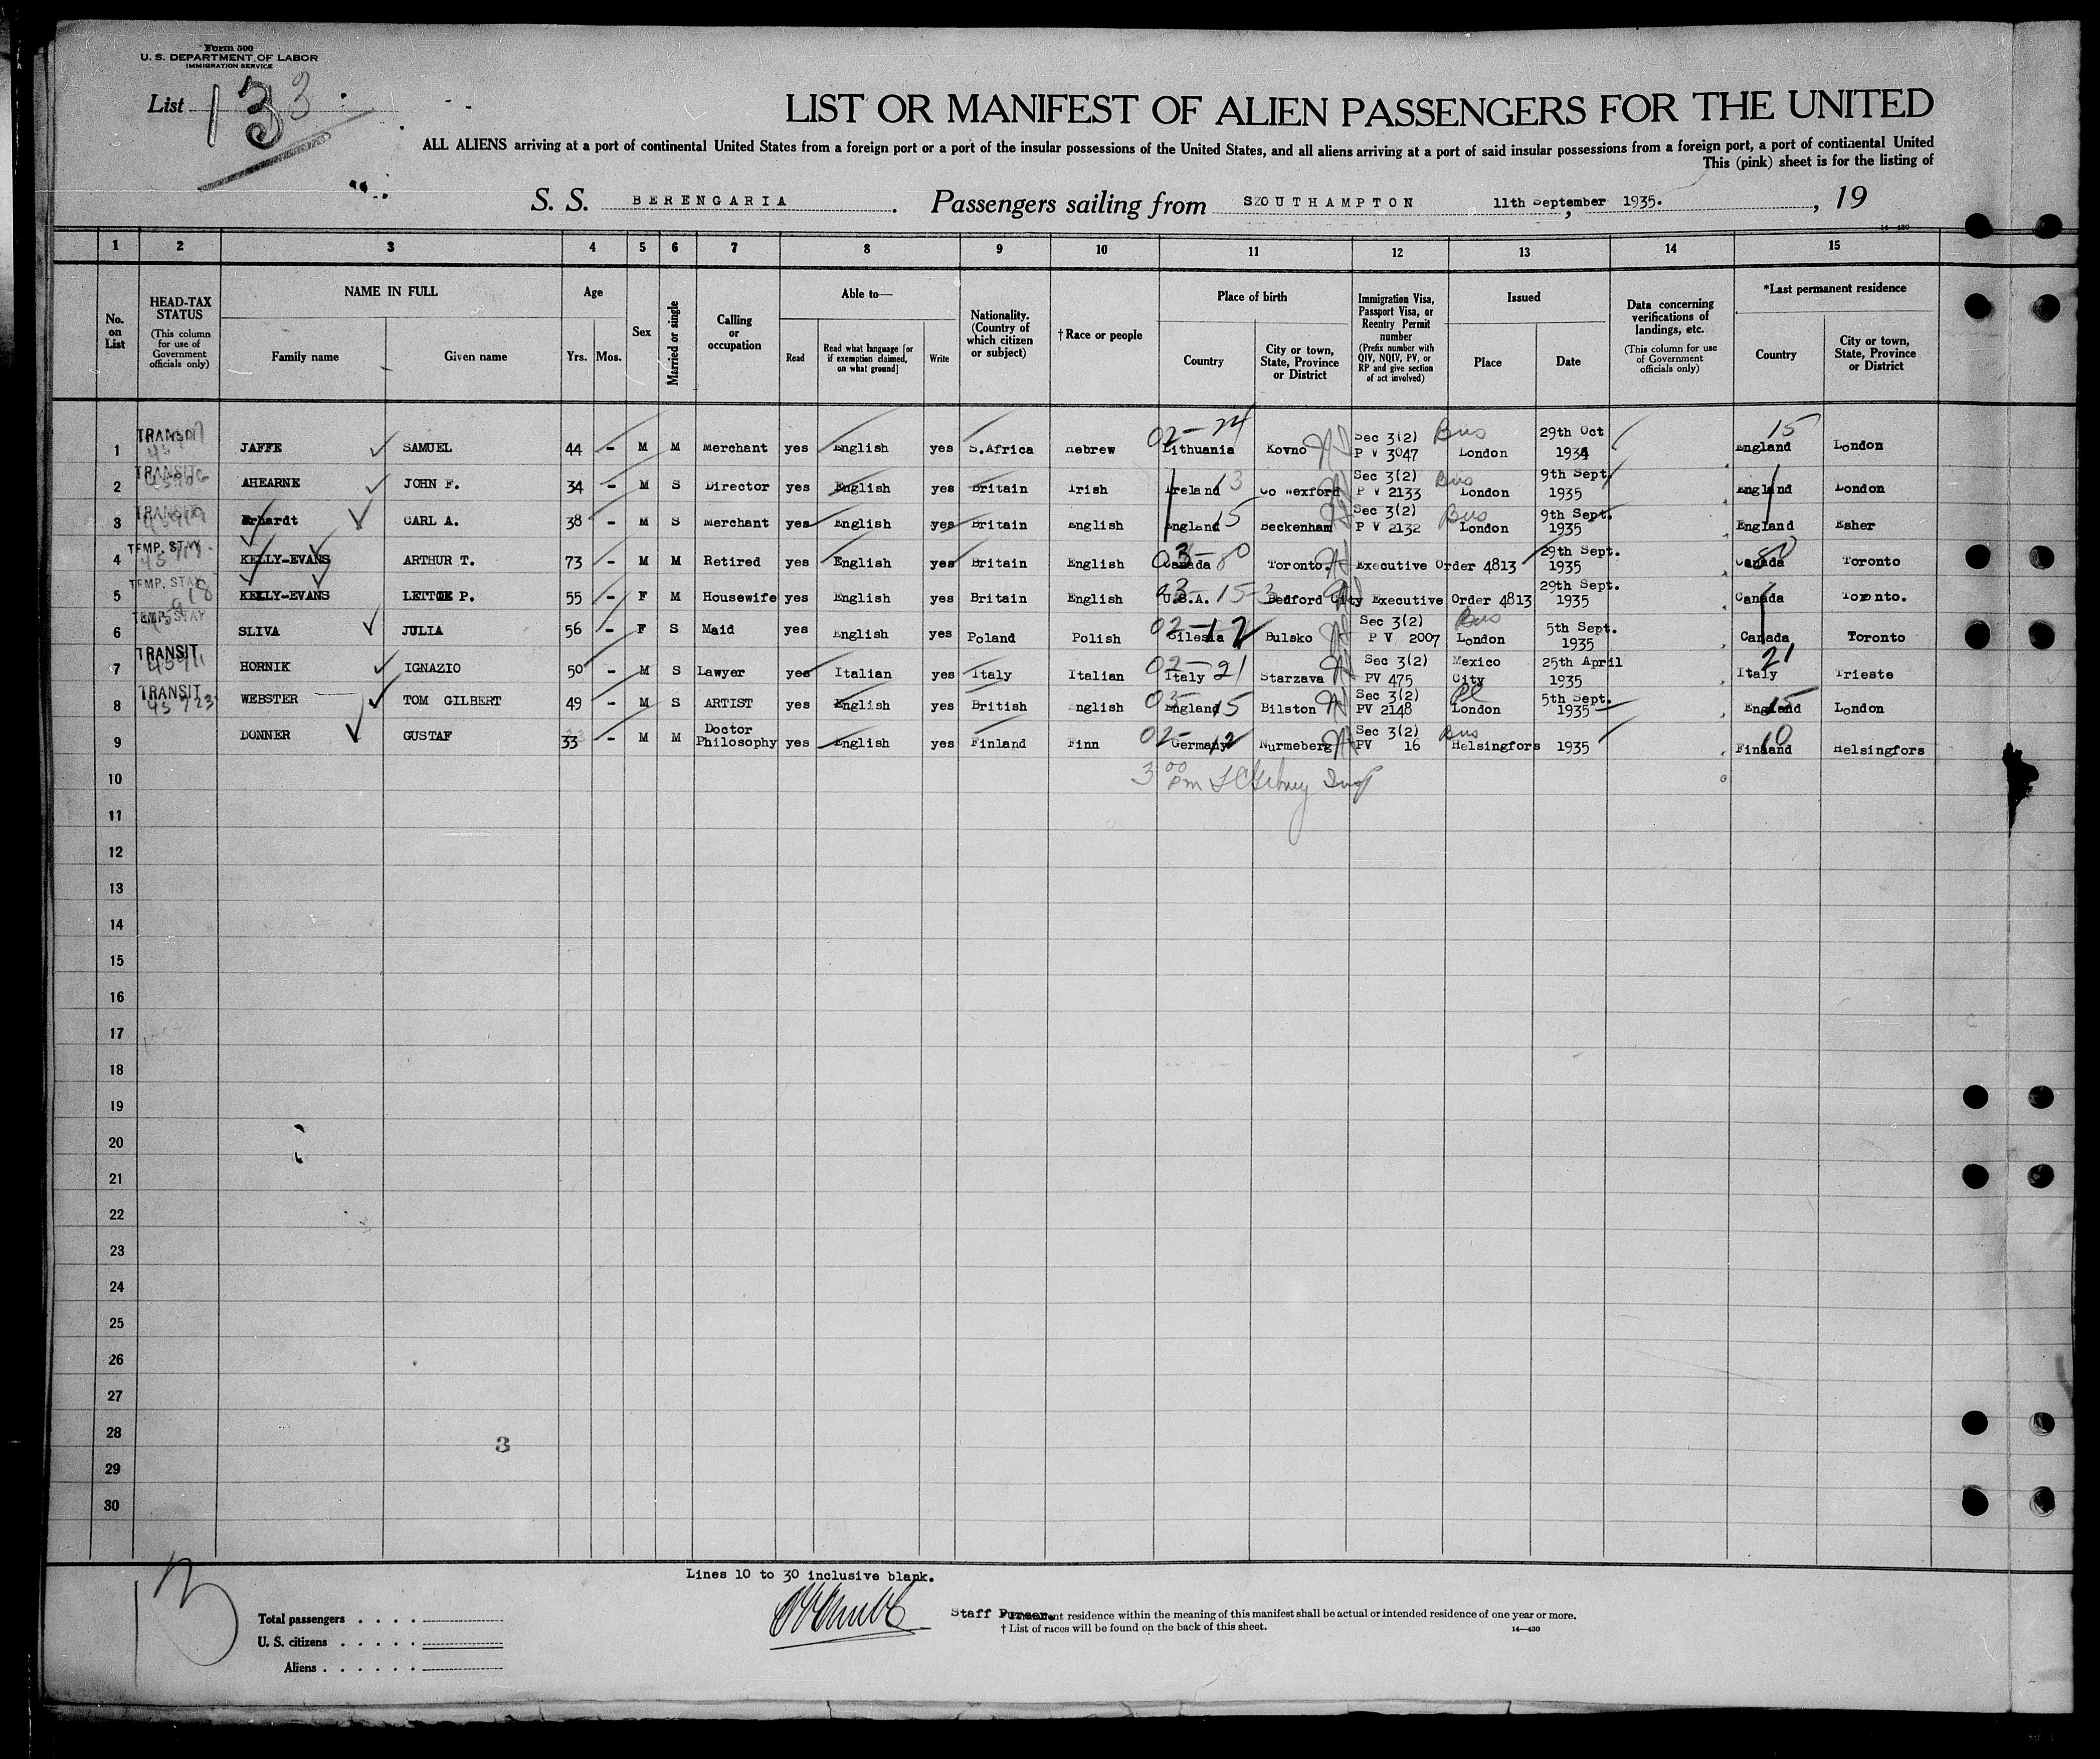 Form 500
U. S. DEPARTMENT OF LABOR
IMMIGRATION SERVICE
List 13 3
LIST OR MANIFEST OF ALIEN PASSENGERS FOR THE UNITED
ALL ALIENS arriving at a port of continental United States from a foreign port or a port of the insular possessions of the United States, and all aliens arriving at a port of said insular possessions from a foreign port, a port of continental United
This (pink) sheet is for the listing of
S. S. BERENGARIA. Passengers sailing from SZOUTHAMPTON 11th September, 1935. , 19
14-430
1 2 3 4 5 6 7 8 9 10 11 12 13 14 15
No. on List
HEAD-TAX STATUS (This column for use of Government officials only)
NAME IN FULL Family name Given name
Age Yrs. Mos.
Sex
Married or single
Calling or occupation
Able to— Read Read what language [or if exemption claimed, on what ground] Write
Nationality. (Country of which citizen or subject)
†Race or people
Place of birth Country City or town, State, Province or District
Immigration Visa, Passport Visa, or Reentry Permit number (Prefix number with QIV, NQIV, PV, or RP and give section of act involved)
Issued Place Date
Data concerning verifications of landings, etc. (This column for use of Government officials only)
*Last permanent residence Country City or town, State, Province or District
1 TRANSIT JAFFE SAMUEL 44 - M M Merchant yes English yes S.Africa Hebrew 02-24 Lithuania Kovno Sec 3(2) P V 3047 Bus London 29th Oct 1934 15 England London
2 TRANSIT AHEARNE JOHN F. 34 - M S Director yes English yes Britain Irish Ireland 13 Co Wexford Sec 3(2) P V 2133 Bus London 9th Sept. 1935 England London
3 TRANSIT Erhardt CARL A. 38 - M S Merchant yes English yes Britain English England 15 Beckenham Sec 3(2) P V 2132 Bus London 9th Sept. 1935 England Esher
4 TEMP. STAY KELLY-EVANS ARTHUR T. 73 - M M Retired yes English yes Britain English Canada Toronto. Executive Order 4813 29th Sept. 1935 Canada Toronto
5 TEMP. STAY KELLY-EVANS LETTOE P. 55 - F M Housewife yes English yes Britain English U.S.A. Bedford City Executive Order 4813 29th Sept. 1935 Canada Toronto.
6 TEMP. STAY SLIVA JULIA 56 - F S Maid yes English yes Poland Polish 02-12 Silesia Bulsko Sec 3(2) P V 2007 Bus London 5th Sept. 1935 Canada Toronto
7 TRANSIT HORNIK IGNAZIO 50 - M S Lawyer yes Italian yes Italy Italian 02-21 Italy Starzava Sec 3(2) PV 475 Mexico City 25th April 1935 21 Italy Trieste
8 TRANSIT 45923 WEBSTER TOM GILBERT 49 - M S ARTIST yes English yes British English England 15 Bilston Sec 3(2) PV 2148 Pl London 5th Sept. 1935 15 England London
9 DONNER GUSTAF 33 - M M Doctor Philosophy yes English yes Finland Finn 02-12 Germany Nurmeberg Sec 3(2) PV 16 Bus Helsingfors 1935 10 Finland Helsingfors
10 3 00 pm
11
12
13
14
15
16
17
18
19
20
21
22
23
24
25
26
27
28
29
30
3
Lines 10 to 30 inclusive blank.
13
Total passengers
U. S. citizens
Aliens
Staff Purser. residence within the meaning of this manifest shall be actual or intended residence of one year or more.
† List of races will be found on the back of this sheet.
14—430